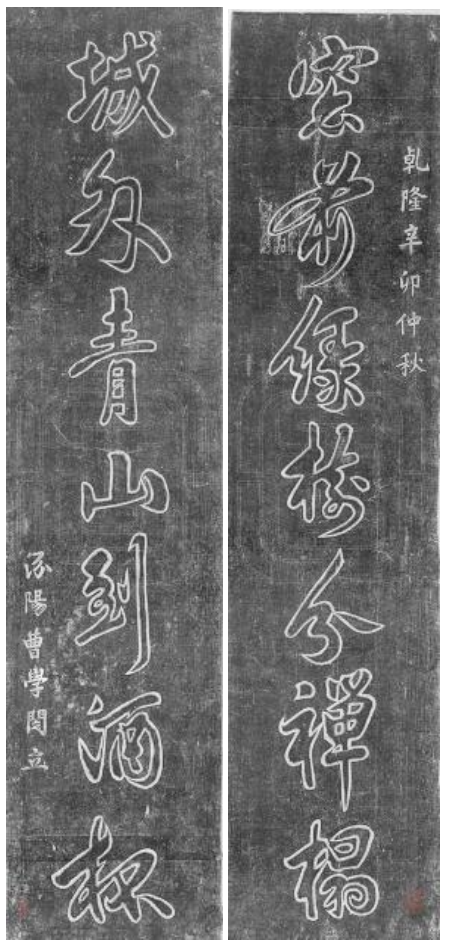 乾隆辛卯仲秋
窓前綠樹分禪榻
城外青山到酒杯
汾陽曹學閔立